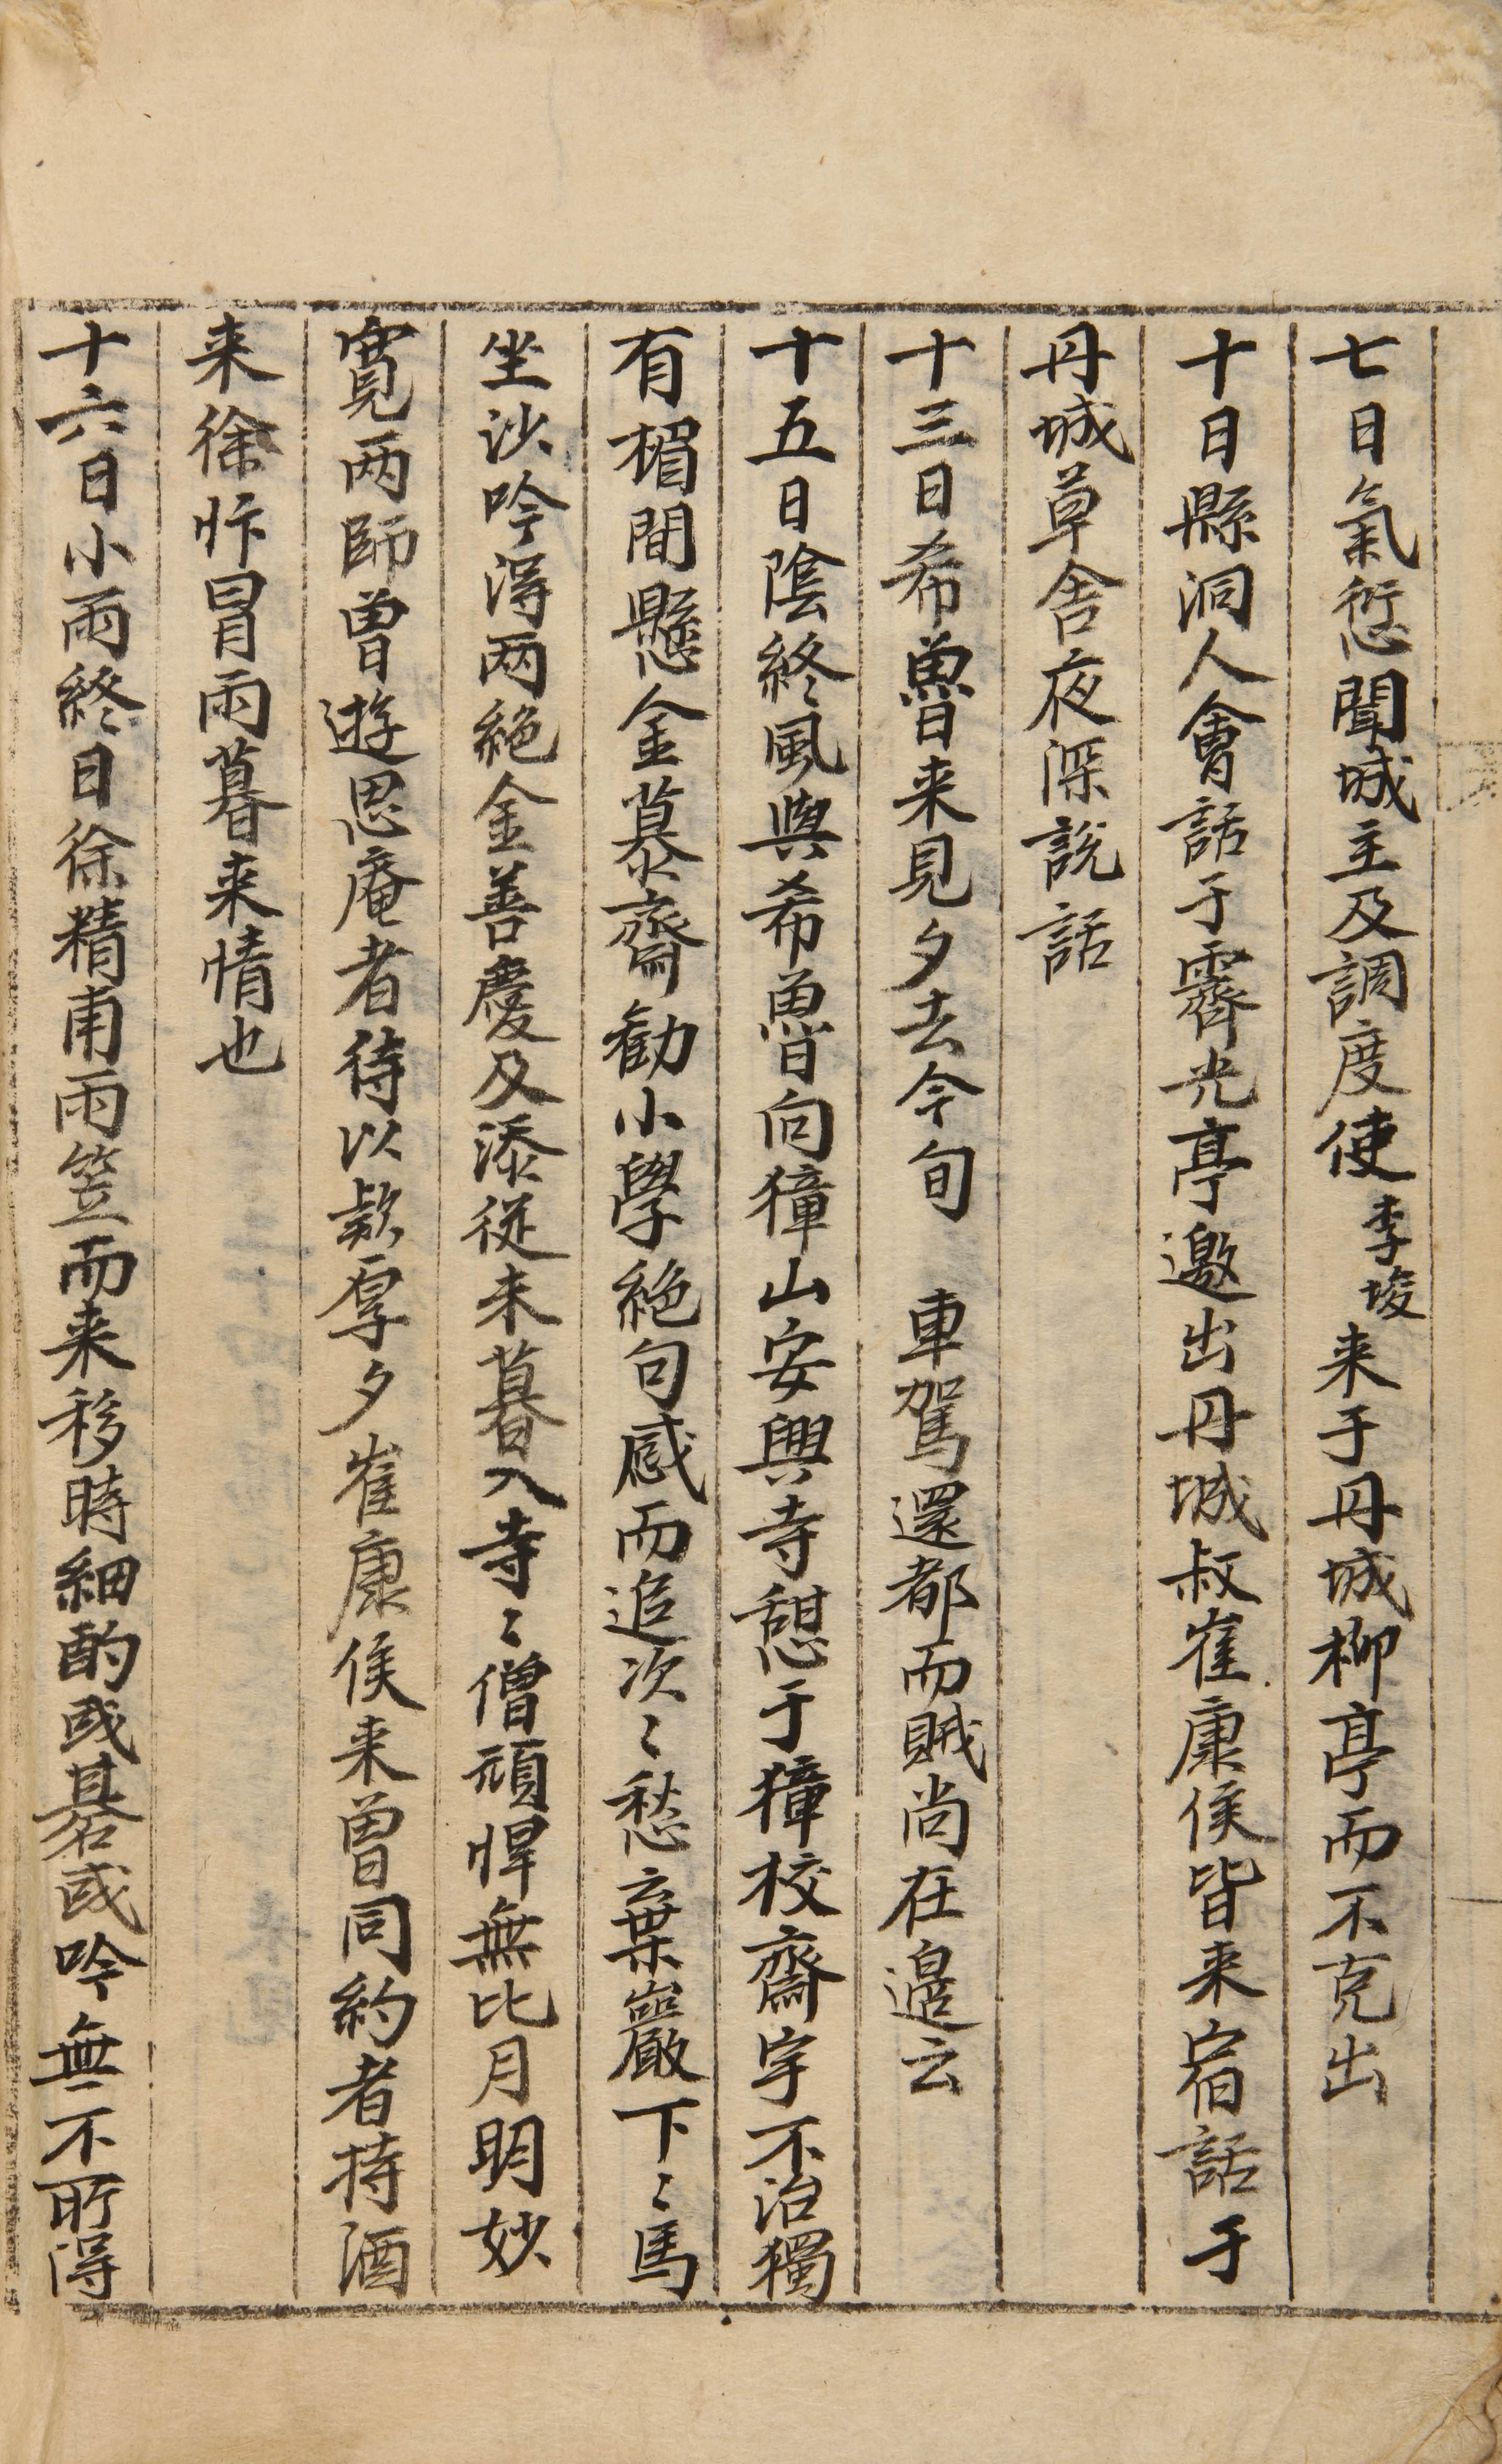 七日氣愆聞城主及調度使李埈来于丹城柳亭而不克出
十日縣洞人會話于霽光亭邀出丹城叔崔康侯皆来宿話于
丹城草舍夜深說話
十三日希魯来見夕去今旬 車駕還都而賊尚在邊云
十五日陰終風與希魯向獐山安興寺憩于獐校齋宇不治獨
有楣間懸金慕齋勸小學絶句感而追次〻愁棄巖下〻馬
坐沙吟淂两絶金善慶及添従来暮入寺〻僧頑悍無比月明妙
寛两師曾遊思庵者待以款厚夕崔康侯来曽同約者持酒
来徐忭冒雨暮来情也
十六日小雨終日徐精甫雨笠而来移時細酌或碁或吟無不所淂